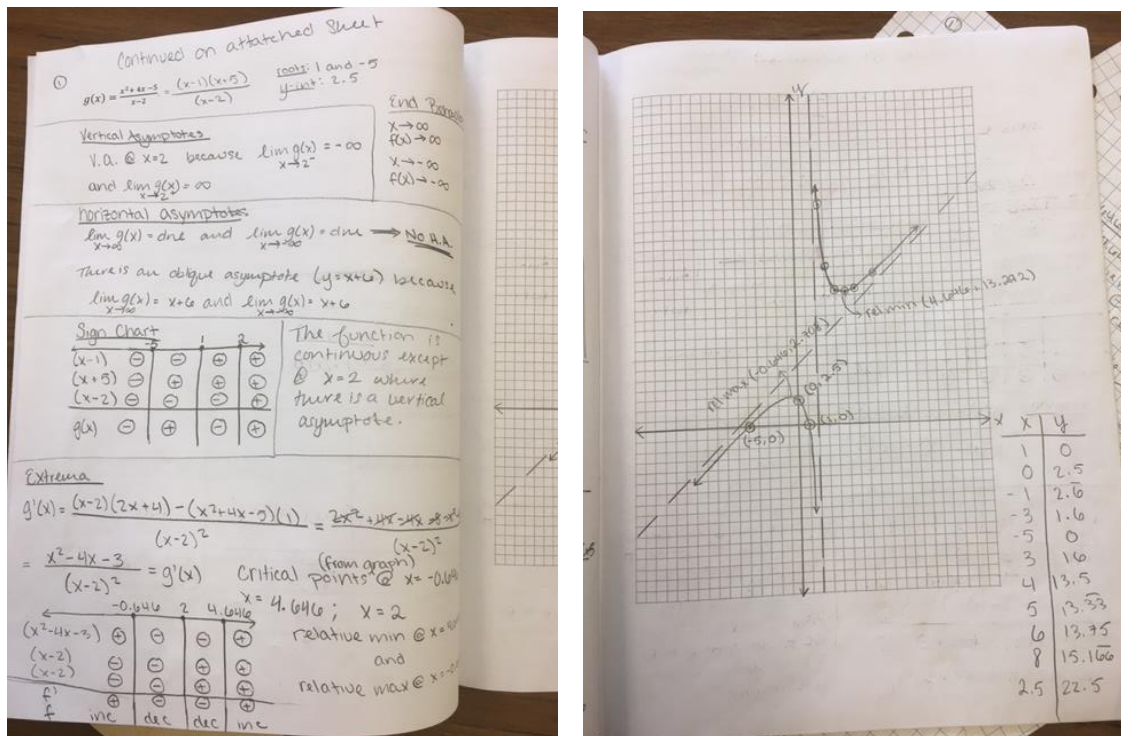 Continued on attatched Sheet
①
g(x) = x²+4x-5/x-2 = (x-1)(x+5)/(x-2)
roots: 1 and -5
y-int: 2.5
End
x→∞
f(x)→∞
x→-∞
f(x)→-∞
Vertical Asymptotes
V.A. @ x=2 because lim x→2⁻ g(x) = -∞
and lim x→2 g(x) = ∞
horizontal asymptotes
lim x→∞ g(x) = dne and lim x→-∞ g(x) = dne → No H.A.
There is an oblique asymptote (y=x+6) because
lim x→∞ g(x) = x+6 and lim x→-∞ g(x) = x+6
Sign Chart
-5 1 2
(x-1) - - - +
(x+5) - + + +
(x-2) - - - +
g(x) - + - +
The function is
continuous except
@ x=2 where
there is a vertical
asymptote.
Extrema
g'(x) = (x-2)(2x+4)-(x²+4x-5)(1)/(x-2)² =
(x-2)²
= x²-4x-3/(x-2)² = g'(x)
(from graph)
Critical points @ x=
x= 4.646; x=2
-0.646 2 4.646
(x²-4x-3) + - - +
(x-2) - - + +
(x-2) - - + +
f' + - - +
f inc dec dec inc
relative min @ x=
and
relative max @ x=
①
y
x
rel min (4.646, 13.292)
rel max (-0.646, 2.708)
(0, 2.5)
(1,0)
(-5,0)
x y
1 0
0 2.5
-1 2.6̅
-3 1.6
-5 0
3 16
4 13.5
5 13.3̅3̅
6 13.75
8 15.16̅6̅
2.5 22.5